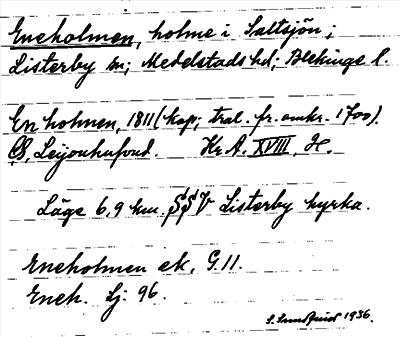 Eneholmen, holme i Saltsjön;
Listerby sn; Medelstads hd; Blekinge l.
En holmen, 1811 (kop; trol. fr. omkr. 1700).
CS, Leijonhufvud. Kr. A. XVIII, H.
Läge 6,9 km. SSV Listerby kyrka.
Eneholmen ek, G.11.
Eneh. Lj 96.
S. Sundquist 1936.